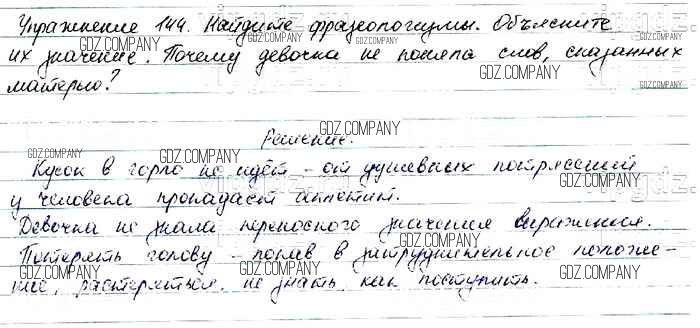 Упражнение 144. Найдите фразеологизмы. Объясните
их значение. Почему девочка не поняла слов, сказанных
матерью?
Решение.
Кусок в горло не идёт - от душевных потрясений
у человека пропадает аппетит.
Девочка не знала переносного значения выражения.
Потерять голову - попав в затруднительное положе-
ние, растеряться, не знать, как поступить.